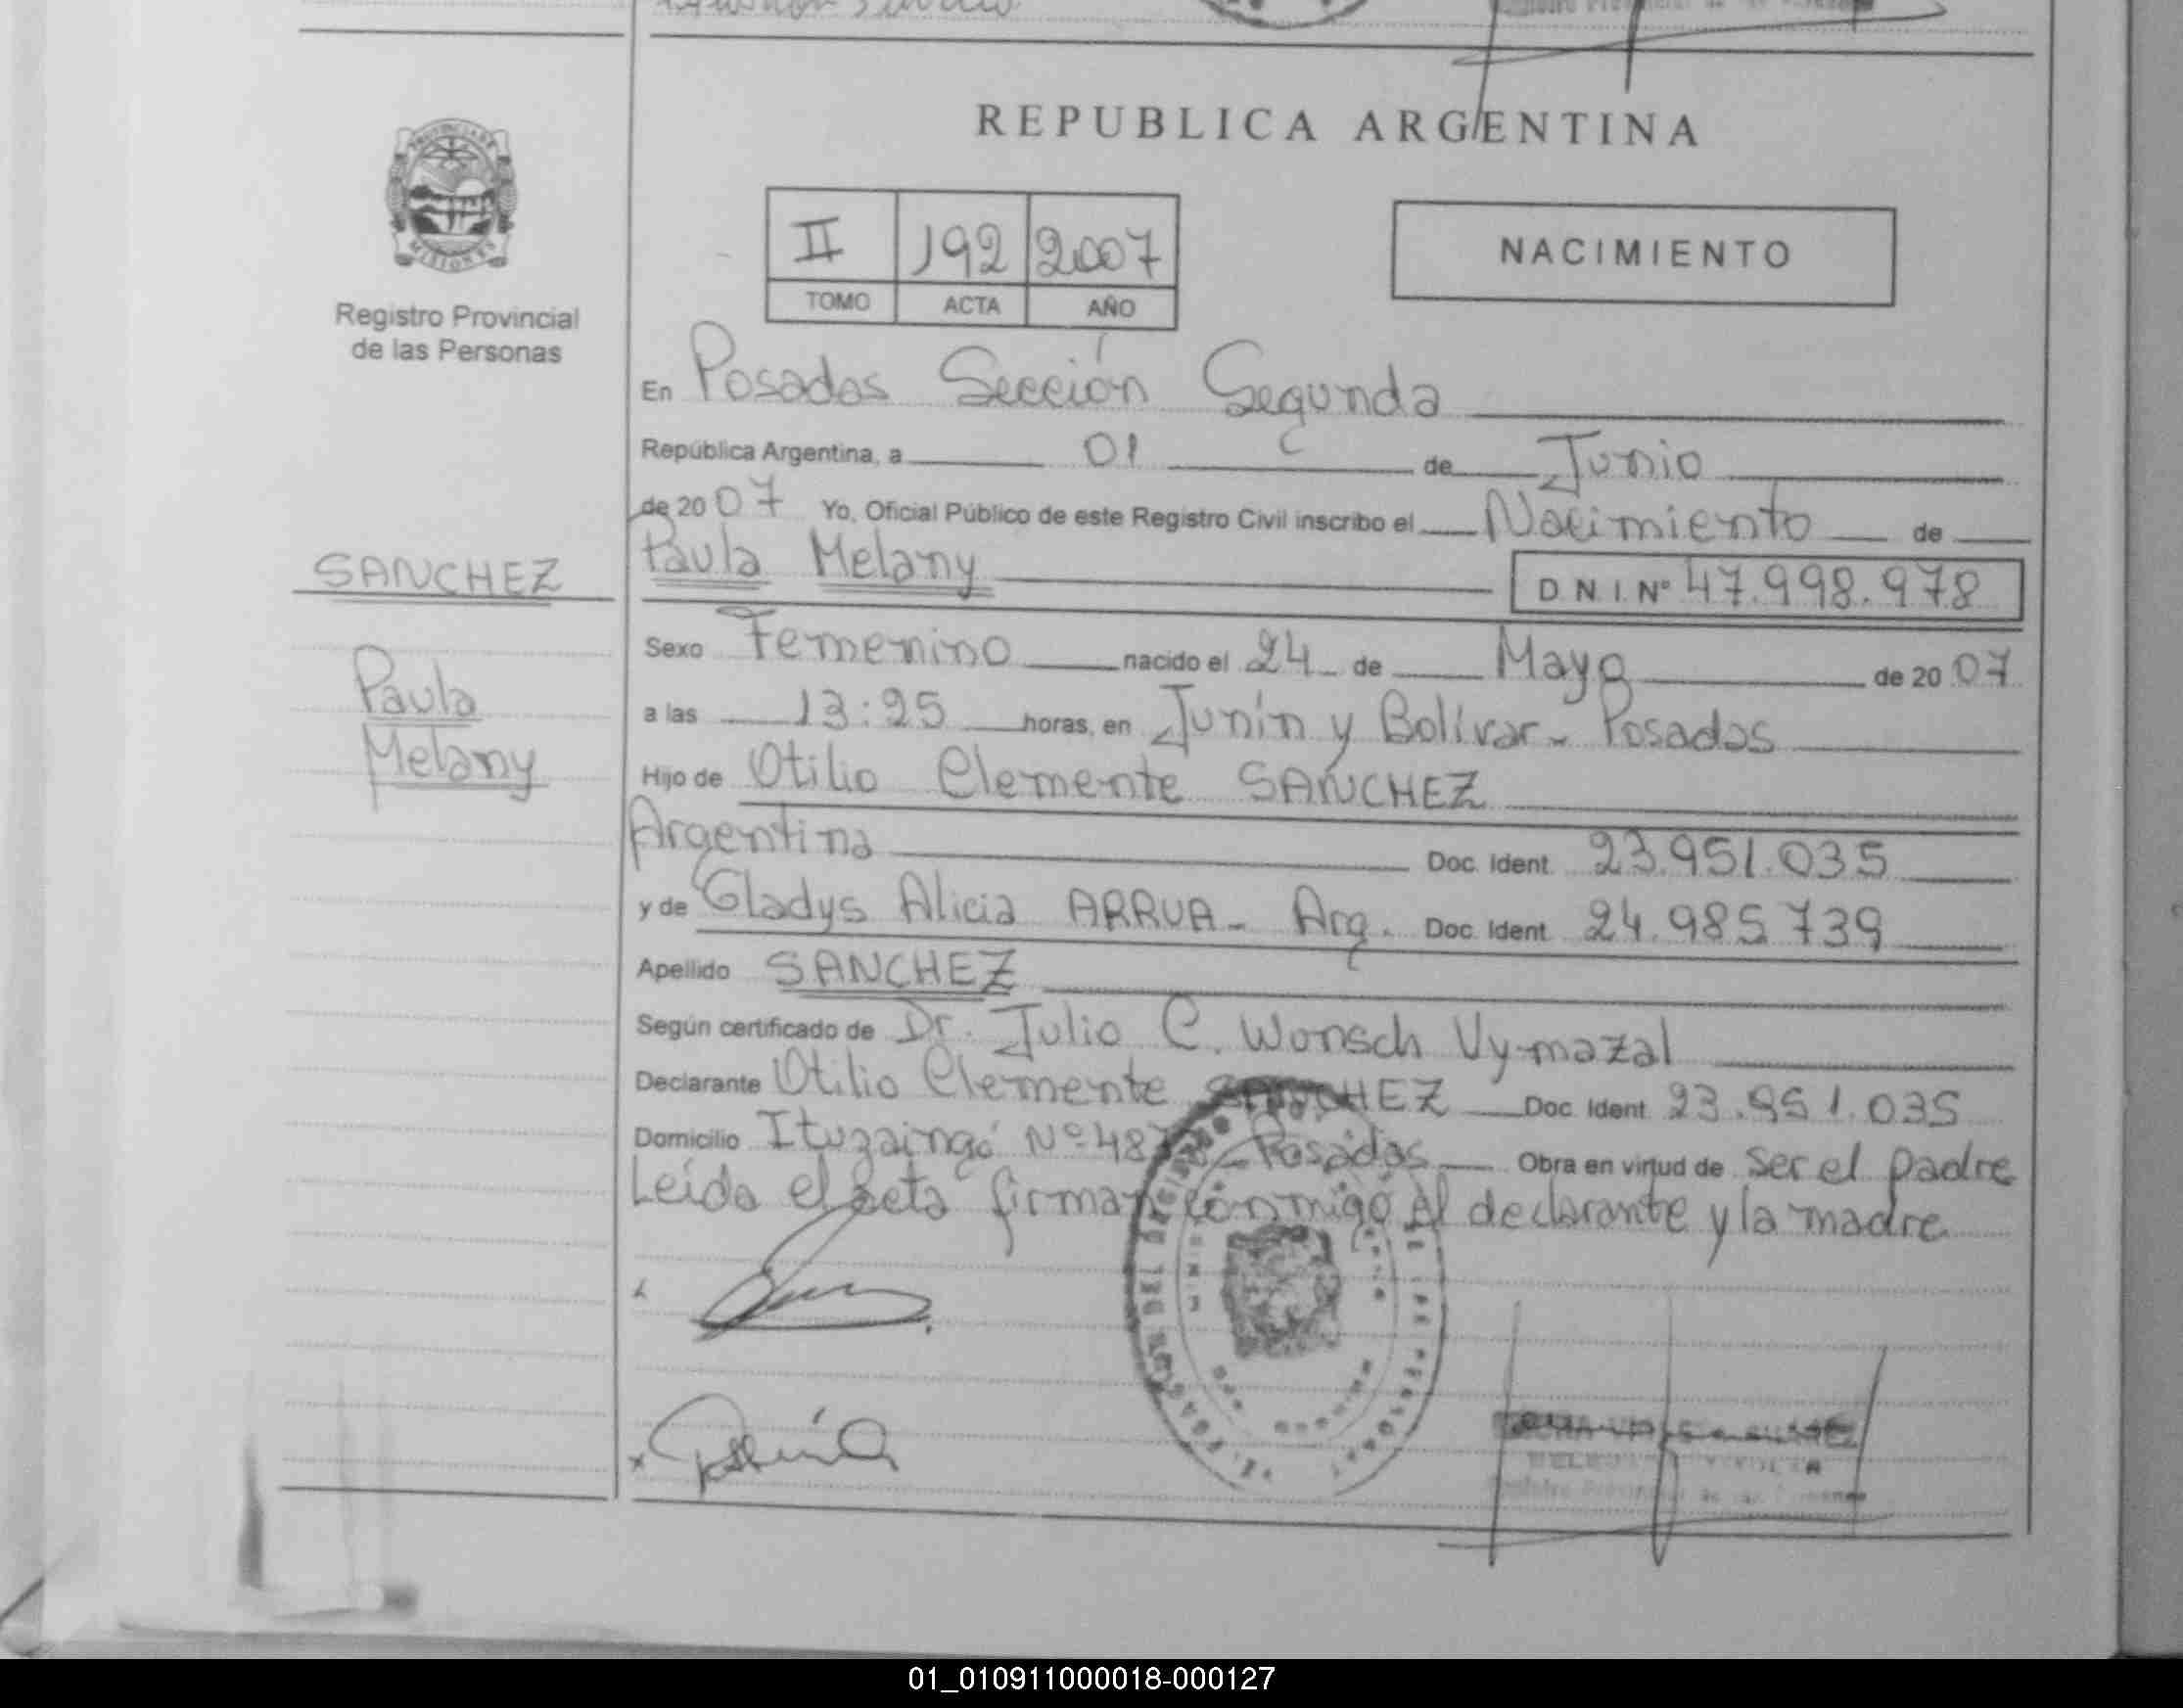 REPUBLICA ARGENTINA
PROVINCIA DE
MISIONES
Registro Provincial
de las Personas
II 192 2007
TOMO ACTA AÑO
NACIMIENTO
En Posadas Sección Segunda
República Argentina, a 01 de Junio
de 2007 Yo, Oficial Público de este Registro Civil inscribo el Nacimiento de
SANCHEZ
Paula Melany
D.N.I. Nº 47.998.978
Paula
Melany
Sexo Femenino nacido el 24 de Mayo de 2007
a las 13:25 horas, en Junín y Bolívar - Posadas
Hijo de Otilio Clemente SANCHEZ
Argentina Doc. Ident. 23.951.035
y de Gladys Alicia ARRUA - Arg. Doc. Ident. 24.985.739
Apellido SANCHEZ
Según certificado de Dr. Julio C. Wonsch Vymazal
Declarante Otilio Clemente SANCHEZ Doc. Ident. 23.951.035
Domicilio Ituzaingó Nº 48 - Posadas Obra en virtud de Ser el padre
Leída el acta firman conmigo el declarante y la madre
01_010911000018-000127